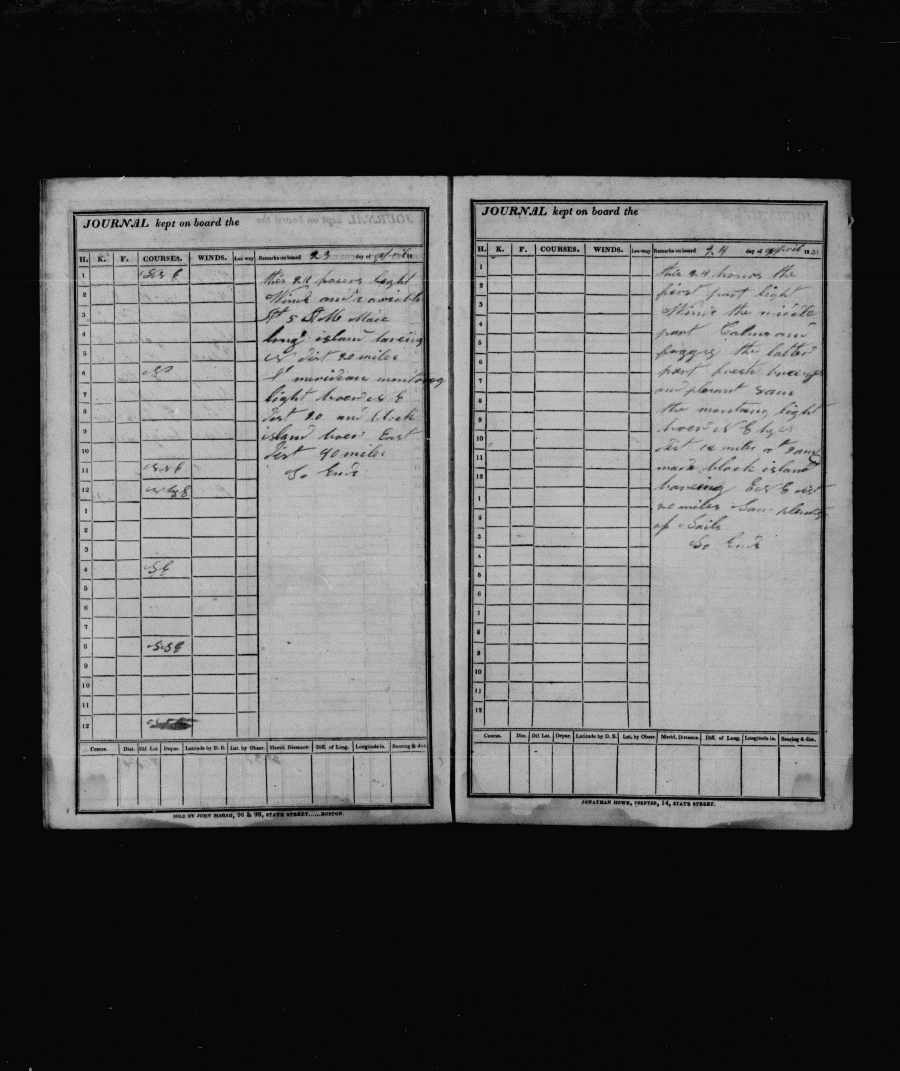 JOURNAL kept on board the
H. K. F. COURSES. WINDS. Lee-way Remarks on board 23 day of april 18
1 2 3 4 5 6 7 8 9 10 11 12 1 2 3 4 5 6 7 8 9 10 11 12
N
S E
S S E
this 24 hours light
Winds and variable
At 5 P M Made
long island bearing
N dist 20 miles
light bore N E
dist 20 and block
island bore East
dist 40 miles
So Ends
Course. Dist. Dif. Lat. Depar. Latitude by D. R. Lat. by Obser. Merid. Distance Diff. of Long. Longitude in. Bearing & dist.
SOLD BY JOHN MARSH, 96 & 98, STATE STREET......BOSTON.
JOURNAL kept on board the
H. K. F. COURSES. WINDS. Lee-way Remarks on board 24 day of april 183
1 2 3 4 5 6 7 8 9 10 11 12 1 2 3 4 5 6 7 8 9 10 11 12
this 24 hours the
first part light
Winds the middle
part Calms and
foggy the latter
part fresh breezes
and plesant
the light
bore N E by
dist miles at
made block island
bearing E N E dist
20 miles Saw plenty
of Sails
So Ends
Course. Dist. Dif. Lat. Depar. Latitude by D. R. Lat. by Obser. Merid. Distance. Diff. of Long. Longitude in. Bearing & dist.
JONATHAN HOWE, PRINTER, 14, STATE STREET.